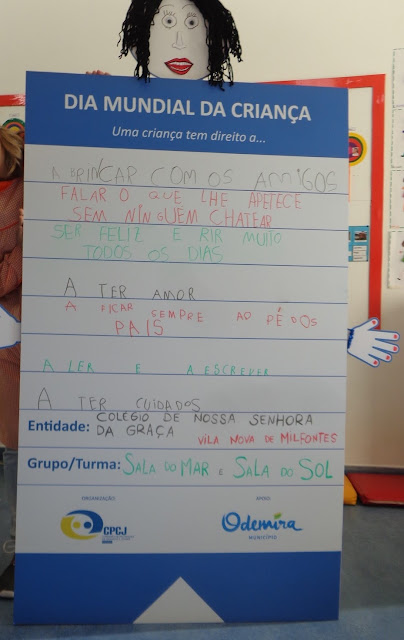 DIA MUNDIAL DA CRIANÇA
Uma criança tem direito a...
A BRINCAR COM OS AMIGOS
FALAR O QUE LHE APETECE
SEM NINGUÉM CHATEAR
SER FELIZ E RIR MUITO
TODOS OS DIAS
A TER AMOR
A FICAR SEMPRE AO PÉ DOS
PAIS
A LER E A ESCREVER
A TER CUIDADOS
Entidade: COLÉGIO DE NOSSA SENHORA
DA GRAÇA VILA NOVA DE MILFONTES
Grupo/Turma: SALA DO MAR E SALA DO SOL
ORGANIZAÇÃO
APOIO
CPCJ
Odemira
MUNICÍPIO